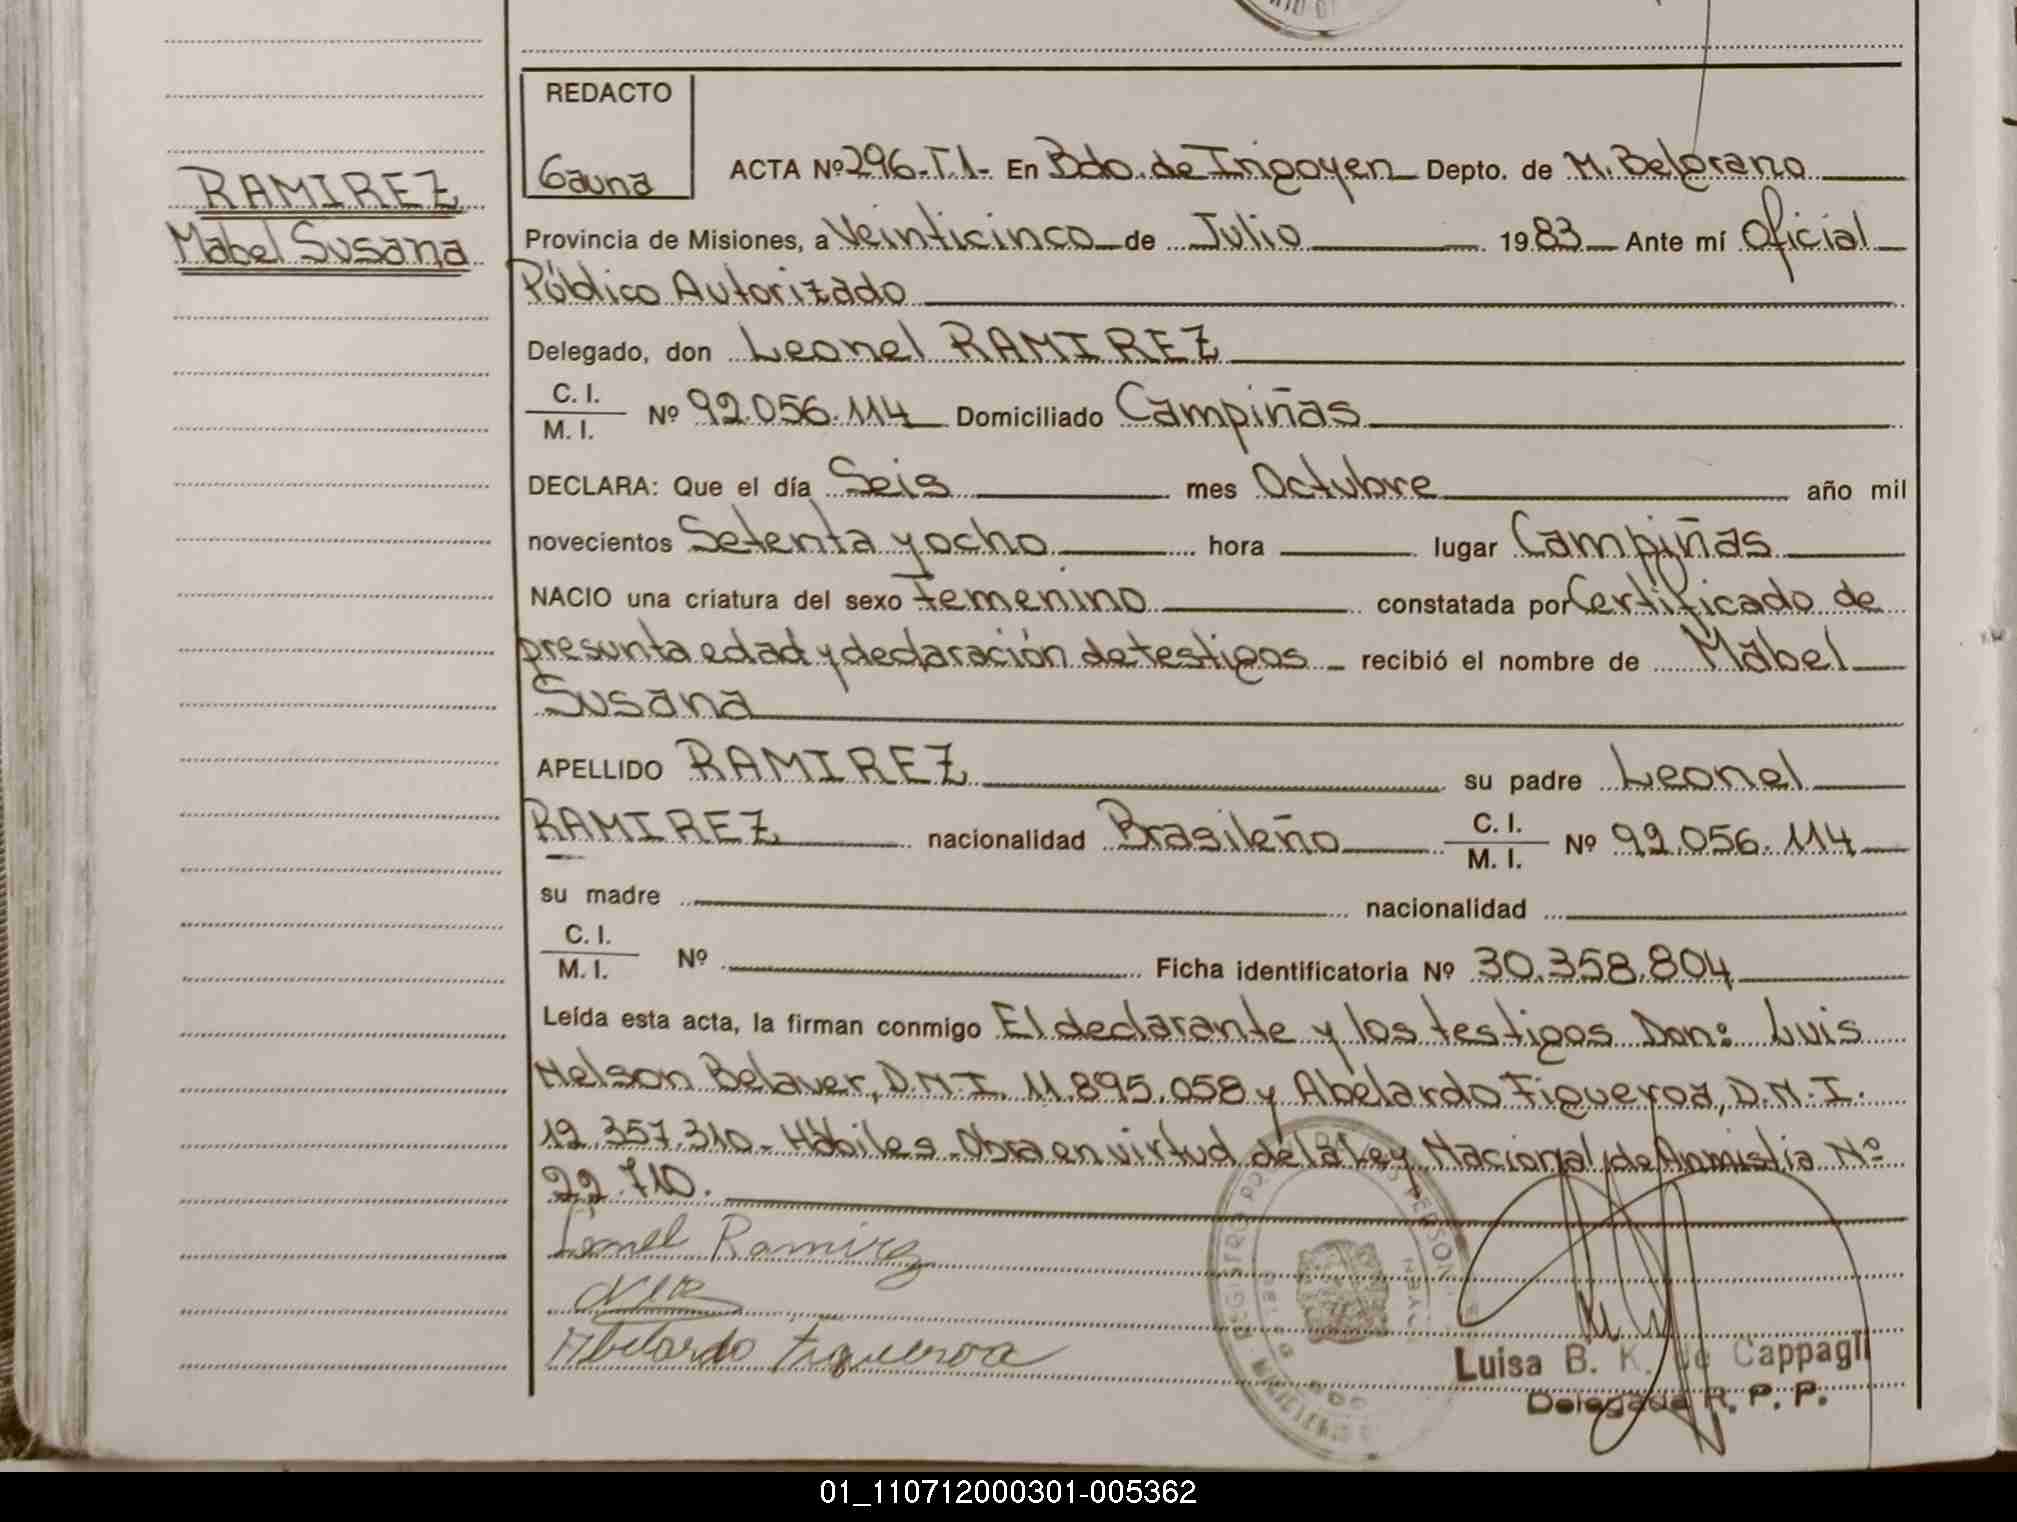 REDACTO
Gauna
RAMIREZ
Mabel Susana
ACTA Nº 296-T.1- En Bdo. de Irigoyen Depto. de M. Belgrano
Provincia de Misiones, a Veinticinco de Julio 1983 Ante mí Oficial
Público Autorizado
Delegado, don Leonel RAMIREZ
C. I.
M. I.
Nº 92.056.114 Domiciliado Campiñas
DECLARA: Que el día Seis mes Octubre año mil
novecientos Setenta y ocho hora lugar Campiñas
NACIO una criatura del sexo femenino constatada por Certificado de
presunta edad y declaración de testigos recibió el nombre de Mabel
Susana
APELLIDO RAMIREZ su padre Leonel
RAMIREZ nacionalidad Brasileño C. I. M. I. Nº 92.056.114
su madre nacionalidad
C. I.
M. I.
Nº Ficha identificatoria Nº 30.358.804
Leída esta acta, la firman conmigo El declarante y los testigos Don: Luis
Nelson Belaver, D.N.I. 11.895.058 y Abelardo Figueroa, D.N.I.
12.357.310- Hábiles- Obra en virtud de la Ley Nacional de Anmistia Nº
22.710.
Leonel Ramirez
Abelardo Figueroa
Luisa B. K. de Cappagli
Delegada R. P. P.
01_110712000301-005362